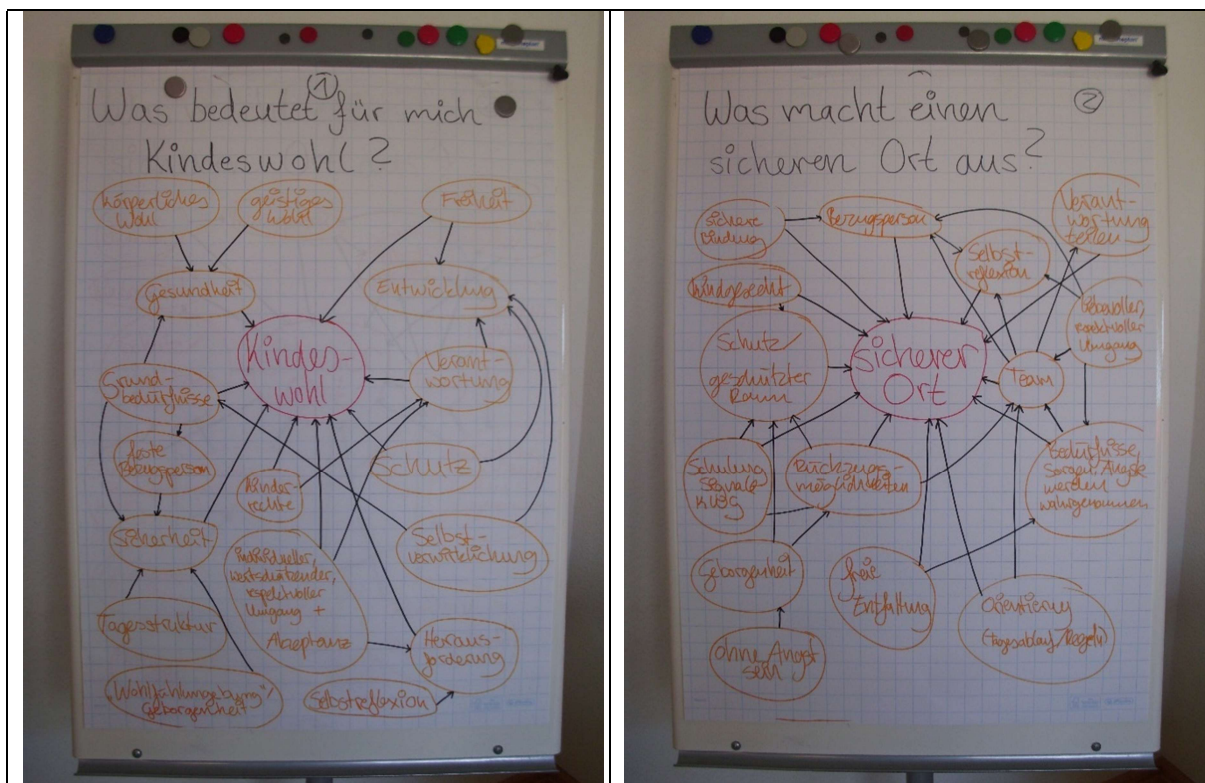 ①
Was bedeutet für mich
Kindeswohl?
körperliches
Wohl
geistiges
Wohl
Freiheit
Gesundheit
Entwicklung
Kindes-
wohl
Verant-
wortung
Grund-
bedürfnisse
feste
Bezugsperson
Kinder-
rechte
Schutz
Sicherheit
individueller,
wertschätzender,
respektvoller
Umgang +
Akzeptanz
Selbst-
verwirklichung
Tagesstruktur
Heraus-
forderung
"Wohlfühlumgebung"/
Geborgenheit
Selbstreflexion
②
Was macht einen
sicheren Ort aus?
sichere
Bindung
Bezugsperson
Verant-
wortung
teilen
Selbst-
reflexion
kindgerecht
liebevoller,
respektvoller
Umgang
Schutz/
geschützter
Raum
sicherer
Ort
Team
Schulung
KWG
Rückzugs-
möglichkeiten
Bedürfnisse,
Sorgen, Ängste
werden
wahrgenommen
Geborgenheit
freie
Entfaltung
Orientierung
(Tagesablauf, Regeln)
ohne Angst
sein